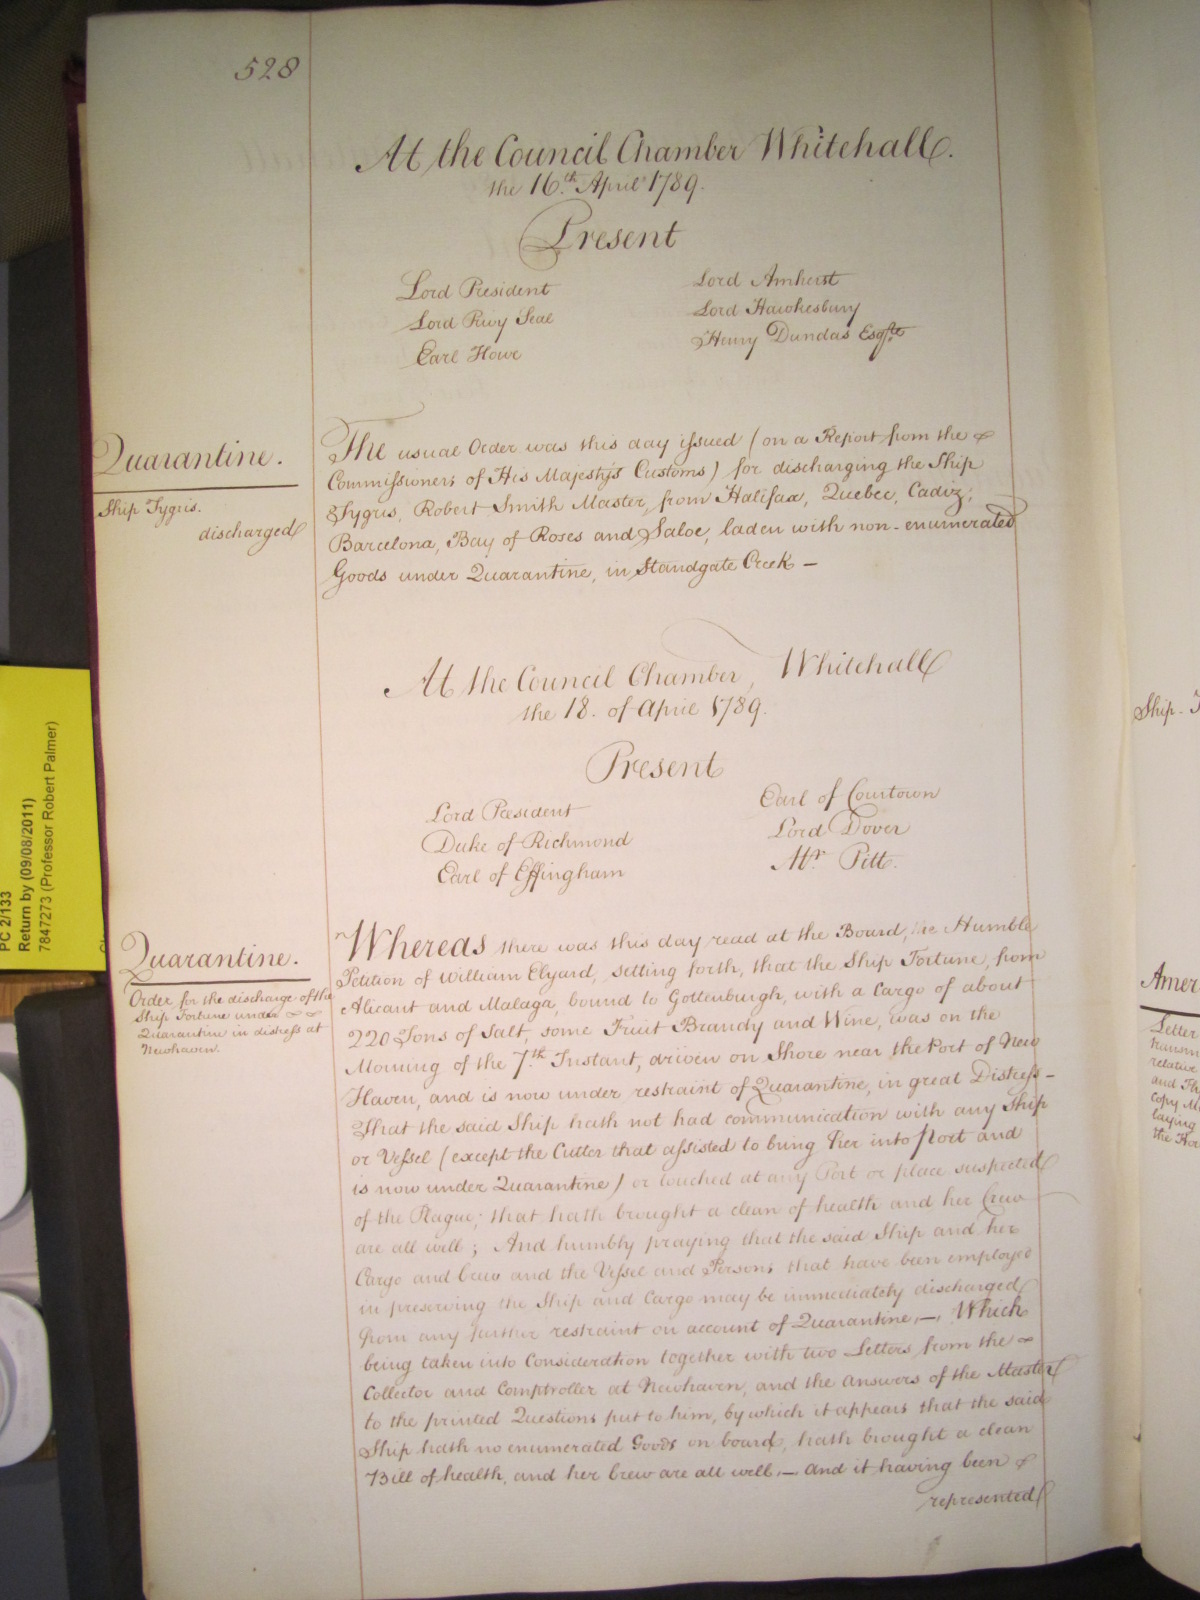 528
At the Council Chamber Whitehall.
the 16.th April 1789.
Present
Lord President
Lord Privy Seal
Earl Howe
Lord Amherst
Lord Hawkesbury
Henry Dundas Esqre
Quarantine.
Ship Tygris.
discharged
The usual Order was this day issued (on a Report from the
Commissioners of His Majesty's Customs) for discharging the Ship
Tygris, Robert Smith Master, from Halifax, Quebec, Cadiz,
Barcelona, Bay of Roses and Saloe, laden with non-enumerated
Goods under Quarantine, in Standgate Creek —
At the Council Chamber, Whitehall
the 18. of April 1789.
Present
Lord President
Duke of Richmond
Earl of Effingham
Earl of Courtown
Lord Dover
Mr. Pitt.
Quarantine.
Order for the discharge of the
Ship Fortune under
Quarantine in distress at
Newhaven.
Whereas there was this day read at the Board, the Humble
Petition of William Elyard, setting forth, that the Ship Fortune, from
Alicant and Malaga, bound to Gottenburgh, with a Cargo of about
220 Tons of Salt, some Fruit Brandy and Wine, was on the
Morning of the 7.th Instant, driven on Shore near the Port of New
Haven, and is now under restraint of Quarantine, in great Distress —
That the said Ship hath not had communication with any Ship
or Vessel (except the Cutter that assisted to bring her into Port and
is now under Quarantine) or touched at any Port or place suspected
of the Plague; that hath brought a clean of health and her Crew
are all well; And humbly praying that the said Ship and her
Cargo and Crew and the Vessel and Persons that have been employed
in preserving the Ship and Cargo may be immediately discharged
from any further restraint on account of Quarantine, —, Which
being taken into Consideration together with two Letters from the
Collector and Comptroller at Newhaven, and the Answers of the Master
to the printed Questions put to him, by which it appears that the said
Ship hath no enumerated Goods on board, hath brought a clean
Bill of health, and her Crew are all well, — and it having been
represented
PC 2/133
Return by (09/08/2011)
7847273 (Professor Robert Palmer)
Ship
Amer
Letter
relative
and
copy
laying
the